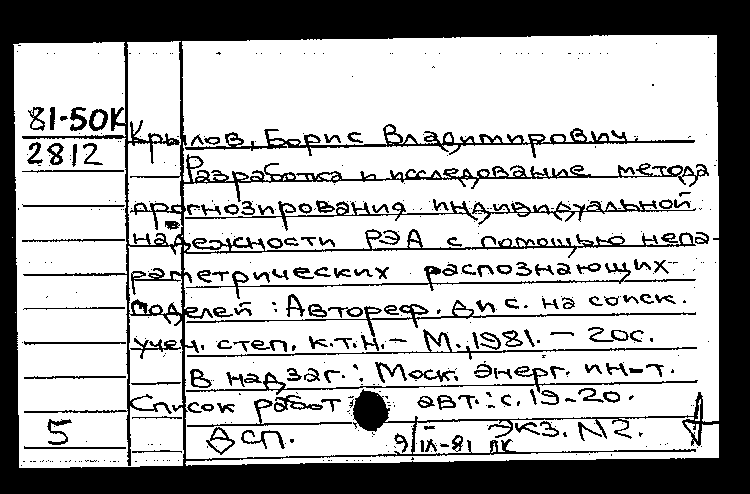 81-50К
2812
Крылов, Борис Владимирович.
Разработка и исследование метода
прогнозирования индивидуальной
надежности РЭА с помощью непа-
раметрических распознающих
моделей : Автореф. дис. на соиск.
учен. степ. к.т.н. – М., 1981. – 20с.
В надзаг.: Моск. энерг. ин-т.
Список работ авт.: с. 19-20.
5 ДСП. 9/IX-81 ПК Экз. N2.